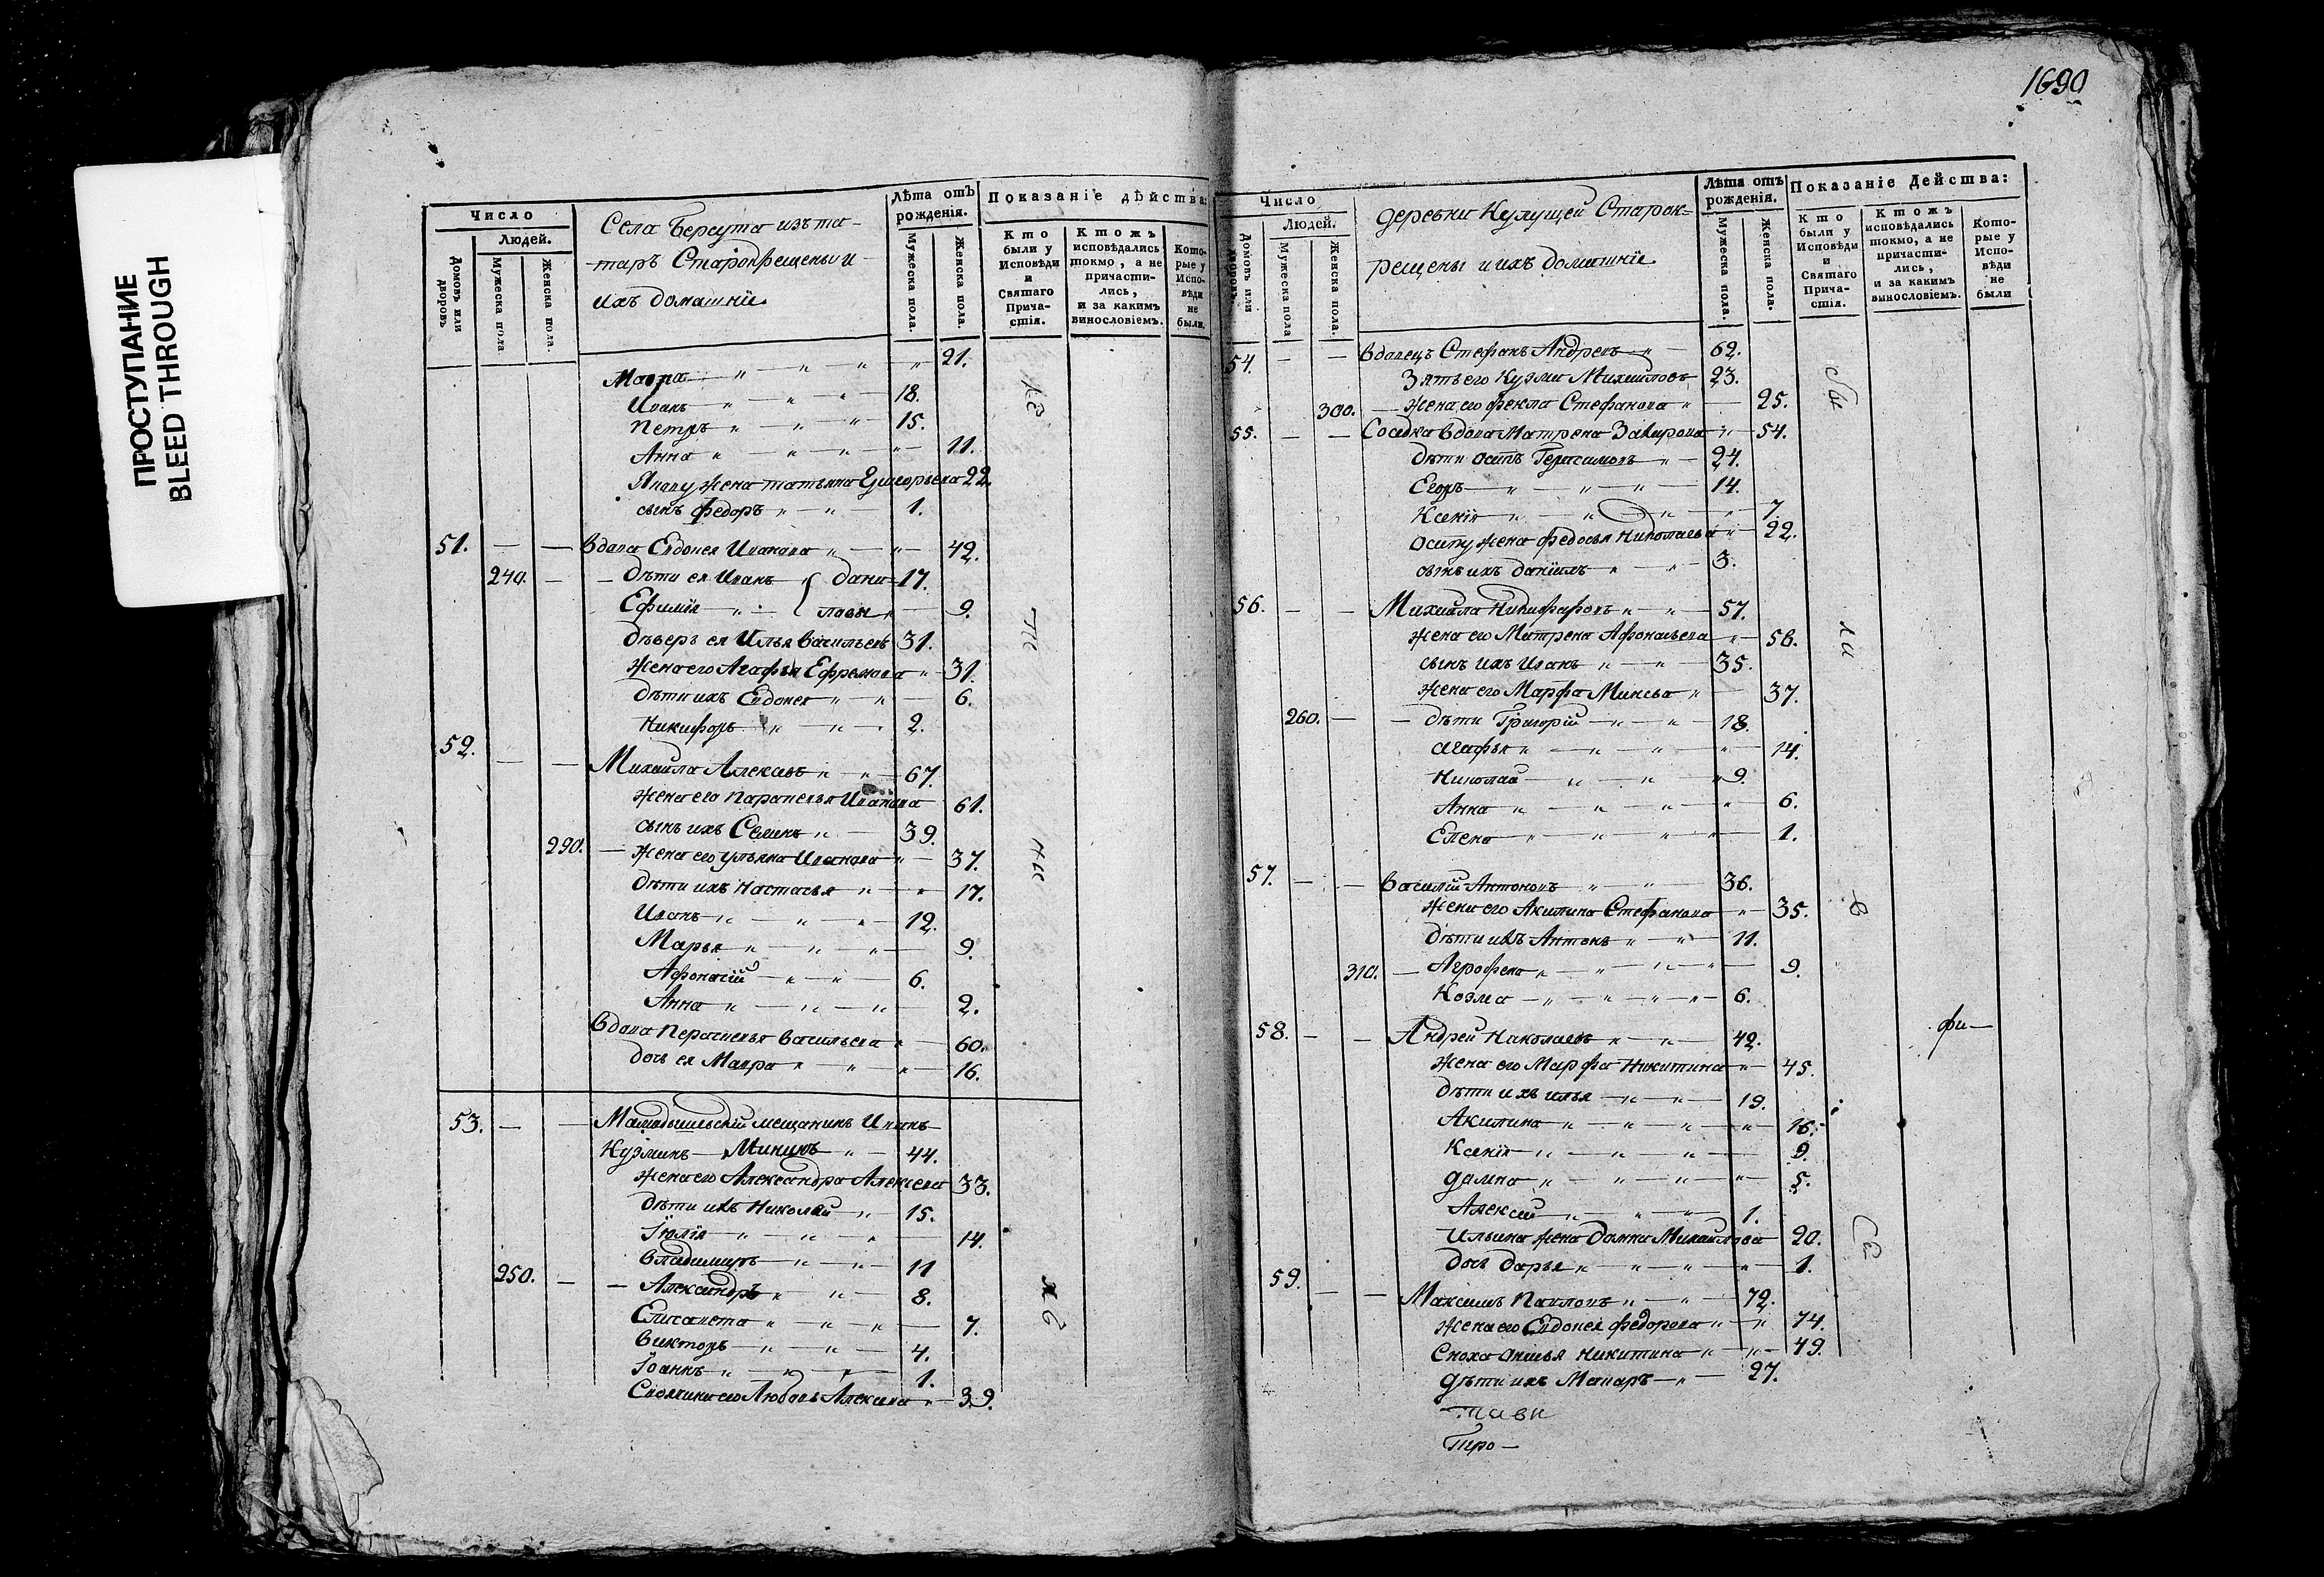 ПРОСТУПАНИЕ
BLEED THROUGH
Число
Людей.
Домовъ или дворовъ
Мужеска пола
Женска пола.
Села Берсута изъ та-
таръ Старокрещены и
ихъ домашнїе
Лѣта отъ рожденія.
Мужеска пола.
Женска пола.
Показаніе дѣйства:
Кто были у Исповѣди и Святаго Прича-стія.
Ктожъ исповѣдались токмо, а не причасти-лись, и за какимъ винословіемъ.
Кото-рые у Испо-вѣди не были.
Мавра " " " " 21.
Иванъ " " " 18.
Петръ " " " 15.
Анна " " " " 11.
жена татьяна Григорьева 22.
сынъ Федоръ " " 1.
51. Вдова Евдокея Иванова " " 42.
240. Дѣти ея Иванъ " дани- 17.
Ефимїя " ловы " 9.
Дѣверь ея Илья Васильевъ 31.
жена его Агафья Ефремова " 31.
Дѣти ихъ Евдокея " " 6.
Никифоръ " " " 2.
52. Михайла Алексѣевъ " " 67.
жена его Парасковья Иванова 61.
сынъ ихъ Семенъ " 39.
290. жена его ульяна Иванова " 37.
Дѣти ихъ Настасья " " 17.
Иванъ " " " 12.
Марья " " " 9.
Афонасїй " " 6.
Анна " " " 2.
Вдова Парасковья Васильева " 60.
дочь ея Мавра " " " 16.
53. Мамадышскїй мещанинъ Иванъ
Кузминъ Мининъ " 44.
жена его Александра Алексѣева 33.
Дѣти ихъ Николай " 15.
Їюлїя " " " 14.
Владимиръ " " 11
250. Александръ " " 8.
Елисавета " " " 7.
Викторъ " " 4.
Їоаннъ " " " 1.
Своячина его Любовь Алексѣева " 39.
1690
Число
Людей.
Домовъ или дворовъ.
Мужеска пола
Женска пола.
деревни Кулущей Старок-
рещены и ихъ домашнїе
Лѣта отъ рожденія.
Мужеска пола.
Женска пола.
Показаніе Действа:
Кто были у Исповѣди и Святаго Прича-стія.
Ктожъ исповѣдались токмо, а не причасти-лись, и за какимъ винословіемъ.
Кото-рые у Испо-вѣди не были
54. Вдовецъ Стефанъ Андреевъ " 62.
Зять его Кузма Михаиловъ 23.
300. жена его фекла Стефанова " 25.
55. Соседка вдова Матрена Захарова " 54.
Дѣти осипъ Герасимовъ " 24.
Егоръ " " " 14.
Ксенїя " " " " 7.
осипу жена федосья Николаева " 22.
сынъ ихъ данїилъ " " 3.
56. Михайла Никифоровъ " " 57.
жена его Матрена Афонасьева " 56.
сынъ ихъ Иванъ " " 35.
жена его Марфа Минева " 37.
260. дѣти Григорїй " " 18.
агафья " " " " 14.
Николай " " " 9.
Анна " " " " 6.
Елена " " " " 1.
57. Василїй Антоновъ " " 36.
жена его Акилина Стефанова " 35.
дѣти ихъ Антонъ " " 11.
310. Агрофена " " " " 9.
Козма " " " " 6.
фи-
58. Андрей Николаевъ " " 42.
жена его Марфа Никитина " 45.
дѣти ихъ илья " " 19.
Акилина " " " " 16.
Ксенїя " " " 9.
домна " " " " 5.
Алексей " " " 1.
Ильина жена Домна Михайлова 20.
дочь дарья " " " " 1.
59. Максимъ Павловъ " " 72.
жена его Евдокея федорова " " 74.
Сноха Никитина " " 49.
дѣти ихъ Макаръ " 27.